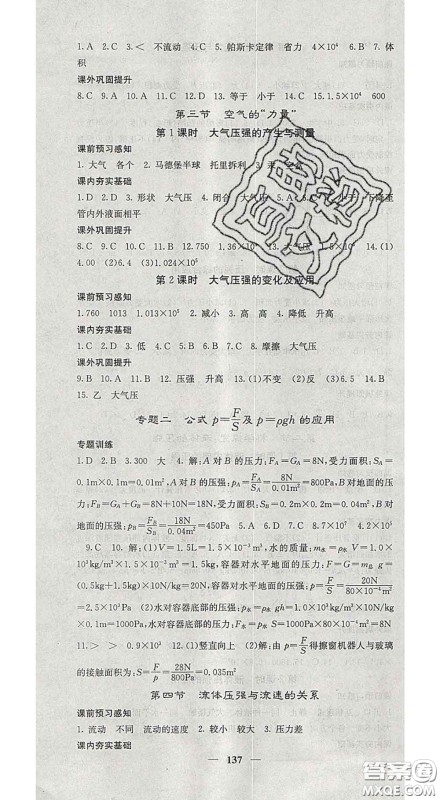 1.A　2.D　3.<　不流动　4.C　5.帕斯卡定律　省力　4×10⁴　6.B　7.体
积
课外巩固提升
8.C　9.A　10.D　11.C　12.D　13.等于　小于　14.C　15.1.5×10⁴　600
第三节　空气的“力量”
第1课时　大气压强的产生与测量
课前预习感知
1.大气　各个　2.马德堡半球　托里拆利　3.
课内夯实基础
1.D　2.D　3.形状　大气压　4.闭合　大气压　5.
管内外液面相平
课外巩固提升
8.C　9.C　10.D　11.B　12.750　1.36×10　13.大气压　1.5×10　14.(1)
4.00　(2)6.4　(3)1.024×10⁵
第2课时　大气压强的变化及应用
课前预习感知
1.760　1013　1.013×10⁵　2.减小　3.高　高　4.降低　升高
课内夯实基础
1.C　2.D　3.低　4.C　5.B　6.C　7.B　8.摩擦　大气压
课外巩固提升
9.B　10.A　11.A　12.压强　升高　13.(1)不变　(2)反　(3)6.5　14.B
15.乙　大气压
专题二　公式 p=F/S 及 p=ρgh 的应用
专题训练
1.D　2.B　3.300　大　4.解:A对B的压力:F_A=G_A=8N,受力面积:S_A=
0.1m×0.1m=0.01m²,A对B的压强:p_A=F_A/S_A=8N/0.01m²=800Pa,B对地面的压
力:F_B=G_A+G_B=8N+10N=18N,受力面积:S_B=0.2m×0.2m=0.04m²,B对
地面的压强:p_B=F_B/S_B=18N/0.04m²=450Pa　5.A　6.D　7.C　8.7×10⁷　4×10²
9.C　10.解:(1)V=1.5L=1.5×10⁻³m³,水的质量:m水=ρ水V=1.0×
10³kg/m³×1.5×10⁻³m³=1.5kg,容器对水平地面的压力:F=G=m总g=
(0.5kg+1.5kg)×10N/kg=20N,容器对水平地面的压强:p=F/S=20N/80×10⁻⁴m²
=2.5×10³Pa　(2)水对容器底部的压强:p水=ρ水gh=1.0×10³kg/m³×10N/kg×
0.1m=1000Pa,水对容器底部的压力:F水=p水S=1000Pa×80×10⁻⁴m²=8N
11.>　>　0.9×10³　12.垂直向上　解:由p=F/S得擦窗机器人与玻璃
的接触面积为:S=F/p=28N/800Pa=0.035m²
第四节　流体压强与流速的关系
课前预习感知
1.流动　不同　流动的速度　2.较小　较大　3.压力差
课内夯实基础
137
答案圈
MXQE.COM